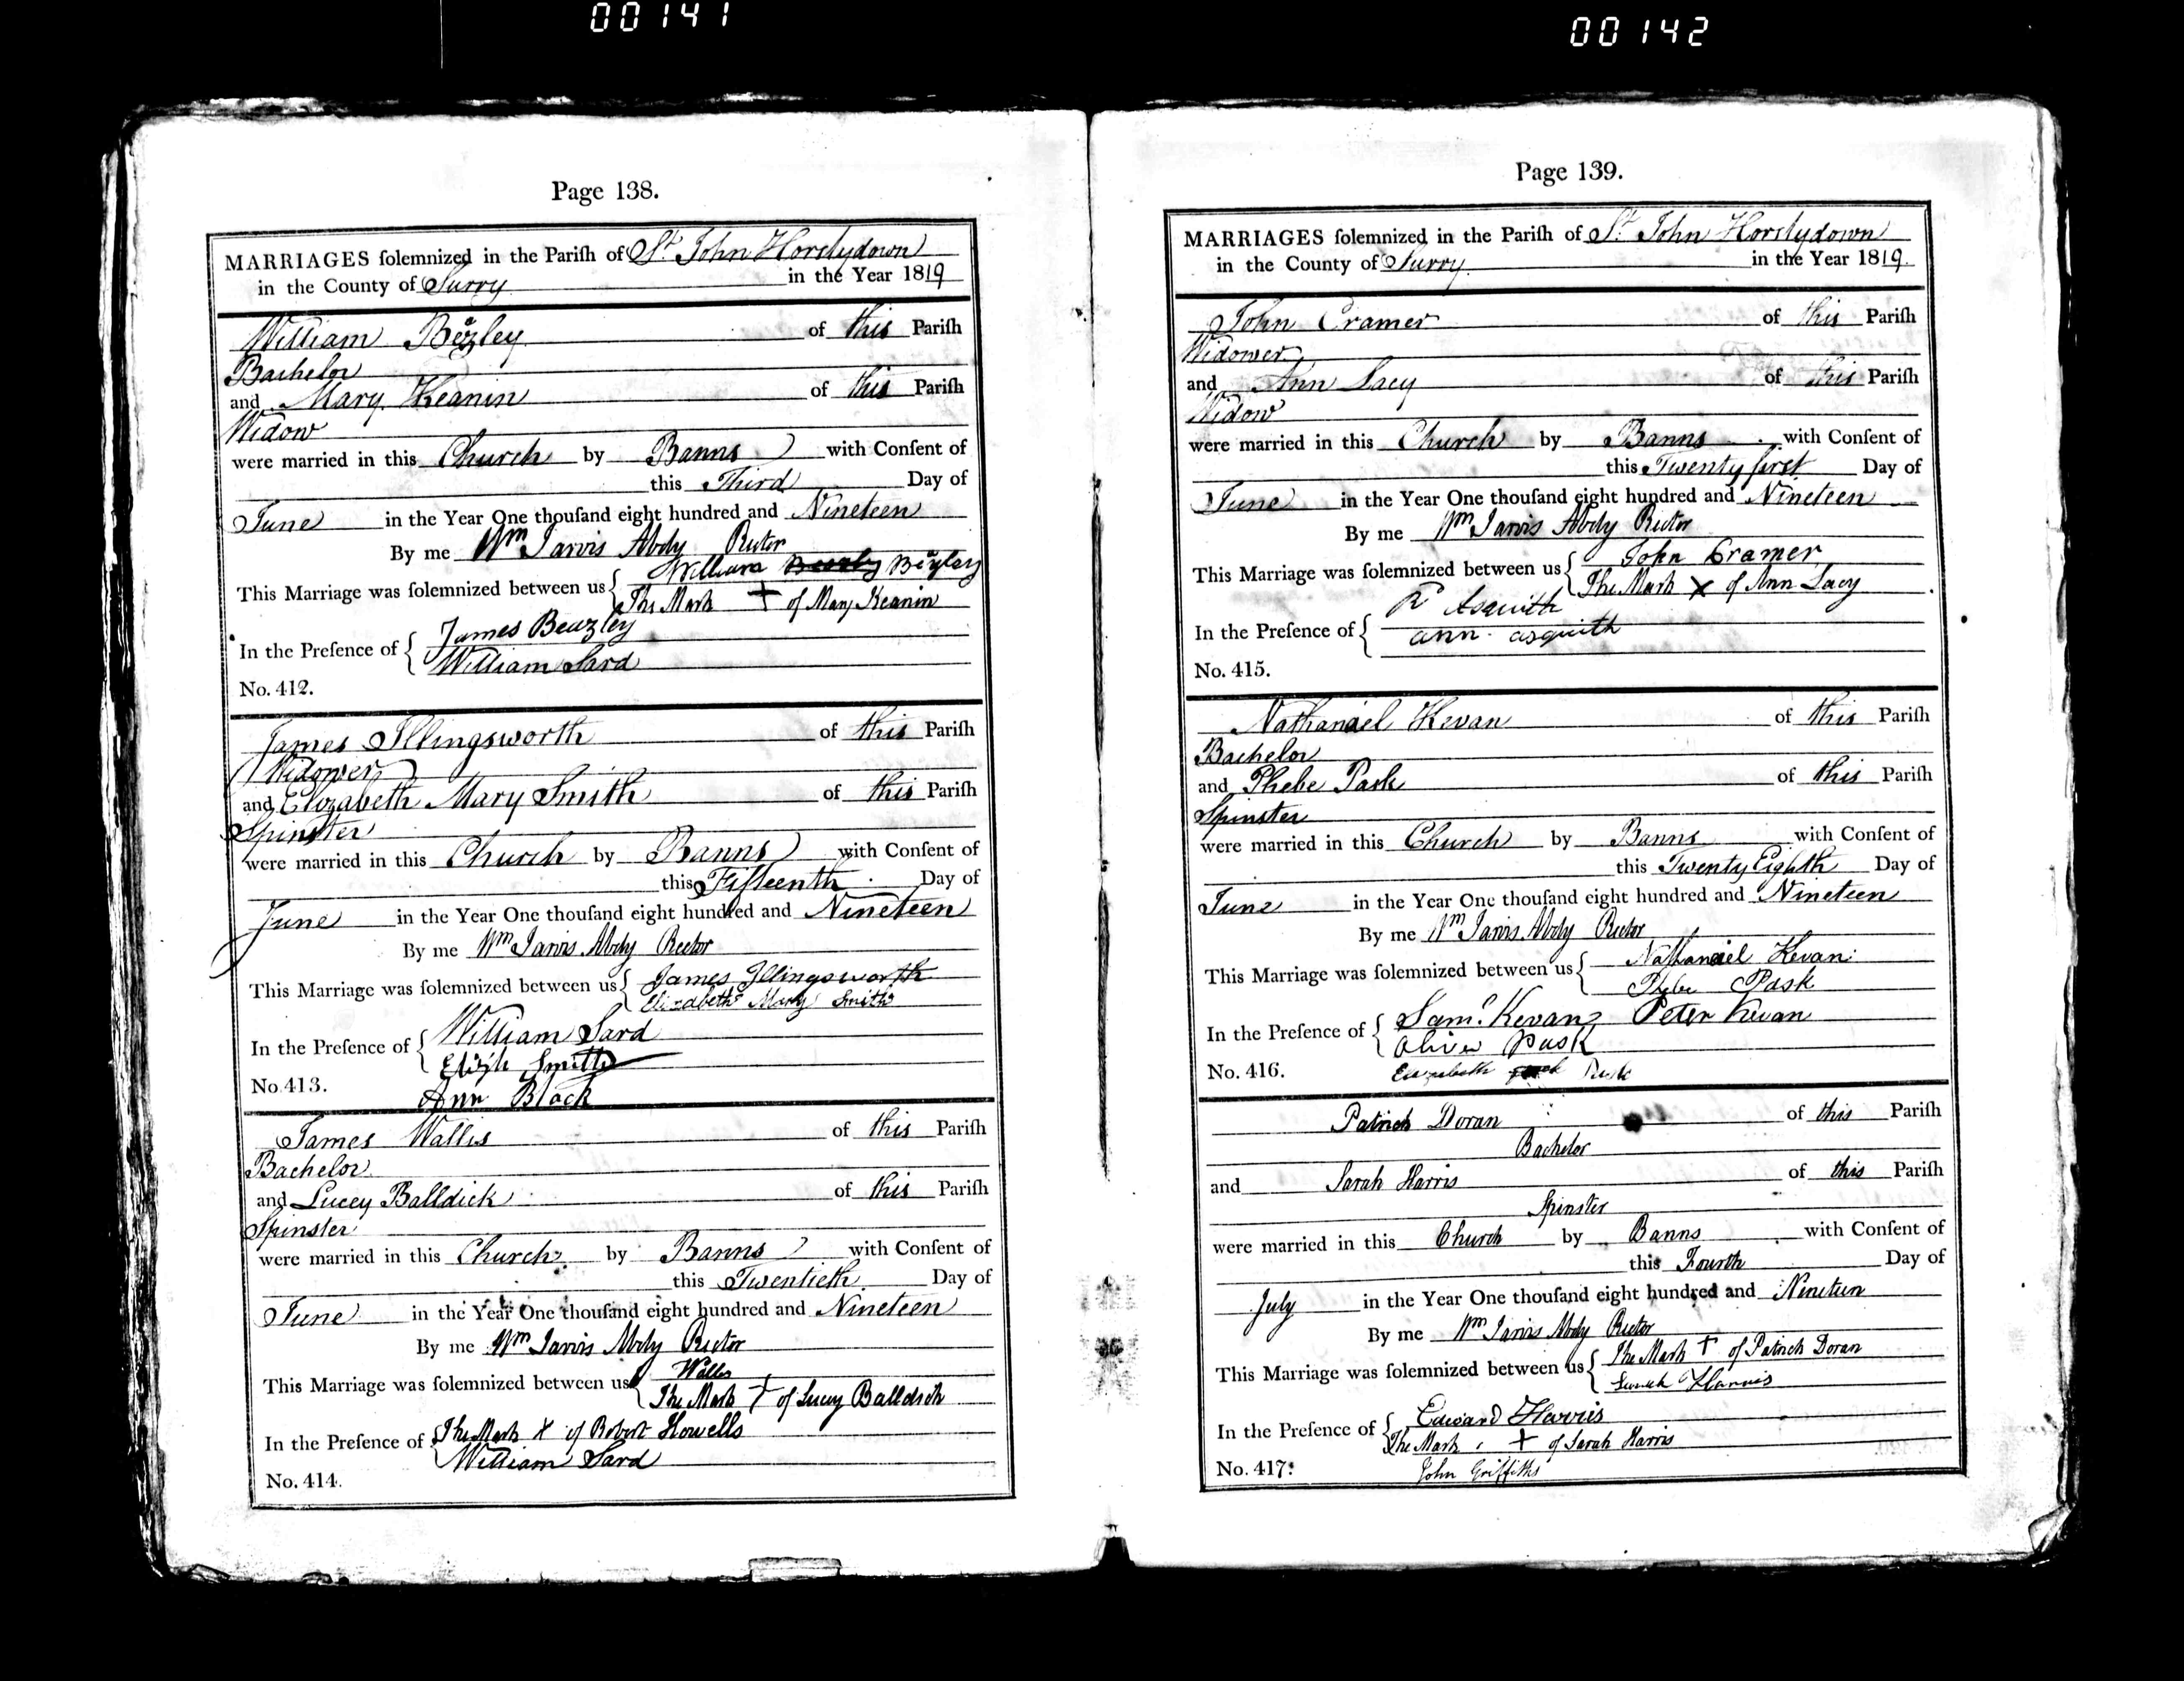 00141
00142
Page 138.
MARRIAGES ſolemnized in the Pariſh of St John Horslydown
in the County of Surry in the Year 1819
William Beazley of this Pariſh
Bachelor
and Mary Keanin of this Pariſh
Widow
were married in this Church by Banns with Conſent of
this Third Day of
June in the Year One thouſand eight hundred and Nineteen
By me Wm Jarvis Abdy Rector
This Marriage was ſolemnized between us William Beazley
The Mark + of Mary Keanin
In the Preſence of James Beazley
William Sard
No. 412.
James Illingsworth of this Pariſh
Widower
and Elizabeth Mary Smith of this Pariſh
Spinster
were married in this Church by Banns with Conſent of
this Fifteenth Day of
June in the Year One thouſand eight hundred and Nineteen
By me Wm Jarvis Abdy Rector
This Marriage was ſolemnized between us James Illingsworth
Elizabeth Mary Smith
In the Preſence of William Sard
Smith
No. 413.
Ann Black
James Wallis of this Pariſh
Bachelor
and Lucey Balldick of this Pariſh
Spinster
were married in this Church by Banns with Conſent of
this Twentieth Day of
June in the Year One thouſand eight hundred and Nineteen
By me Wm Jarvis Abdy Rector
This Marriage was ſolemnized between us Walles
The Mark + of Lucey Balldick
In the Preſence of The Mark X of Robert Howells
William Sard
No. 414.
Page 139.
MARRIAGES ſolemnized in the Pariſh of St John Horslydown
in the County of Surry in the Year 1819.
John Cramer of this Pariſh
Widower
and Ann Lacy of this Pariſh
Widow
were married in this Church by Banns with Conſent of
this Twenty first Day of
June in the Year One thouſand eight hundred and Nineteen
By me Wm Jarvis Abdy Rector
This Marriage was ſolemnized between us John Cramer
The Mark X of Ann Lacy
In the Preſence of R Asquith
ann asquith
No. 415.
Nathaniel Kevan of this Pariſh
Bachelor
and Phebe Pask of this Pariſh
Spinster
were married in this Church by Banns with Conſent of
this Twenty Eighth Day of
June in the Year One thouſand eight hundred and Nineteen
By me Wm Jarvis Abdy Rector
This Marriage was ſolemnized between us Nathaniel Kevan
Pask
In the Preſence of Saml. Kevan Peter Kevan
Oliver Pask
No. 416. Elizabeth Pask
Patrick Doran of this Pariſh
Bachelor
and Sarah Harris of this Pariſh
Spinster
were married in this Church by Banns with Conſent of
this Fourth Day of
July in the Year One thouſand eight hundred and Nineteen
By me Wm Jarvis Abdy Rector
This Marriage was ſolemnized between us The Mark + of Patrick Doran
Sarah Harris
In the Preſence of Edward Harris
The Mark + of Sarah Harris
No. 417. John Griffiths